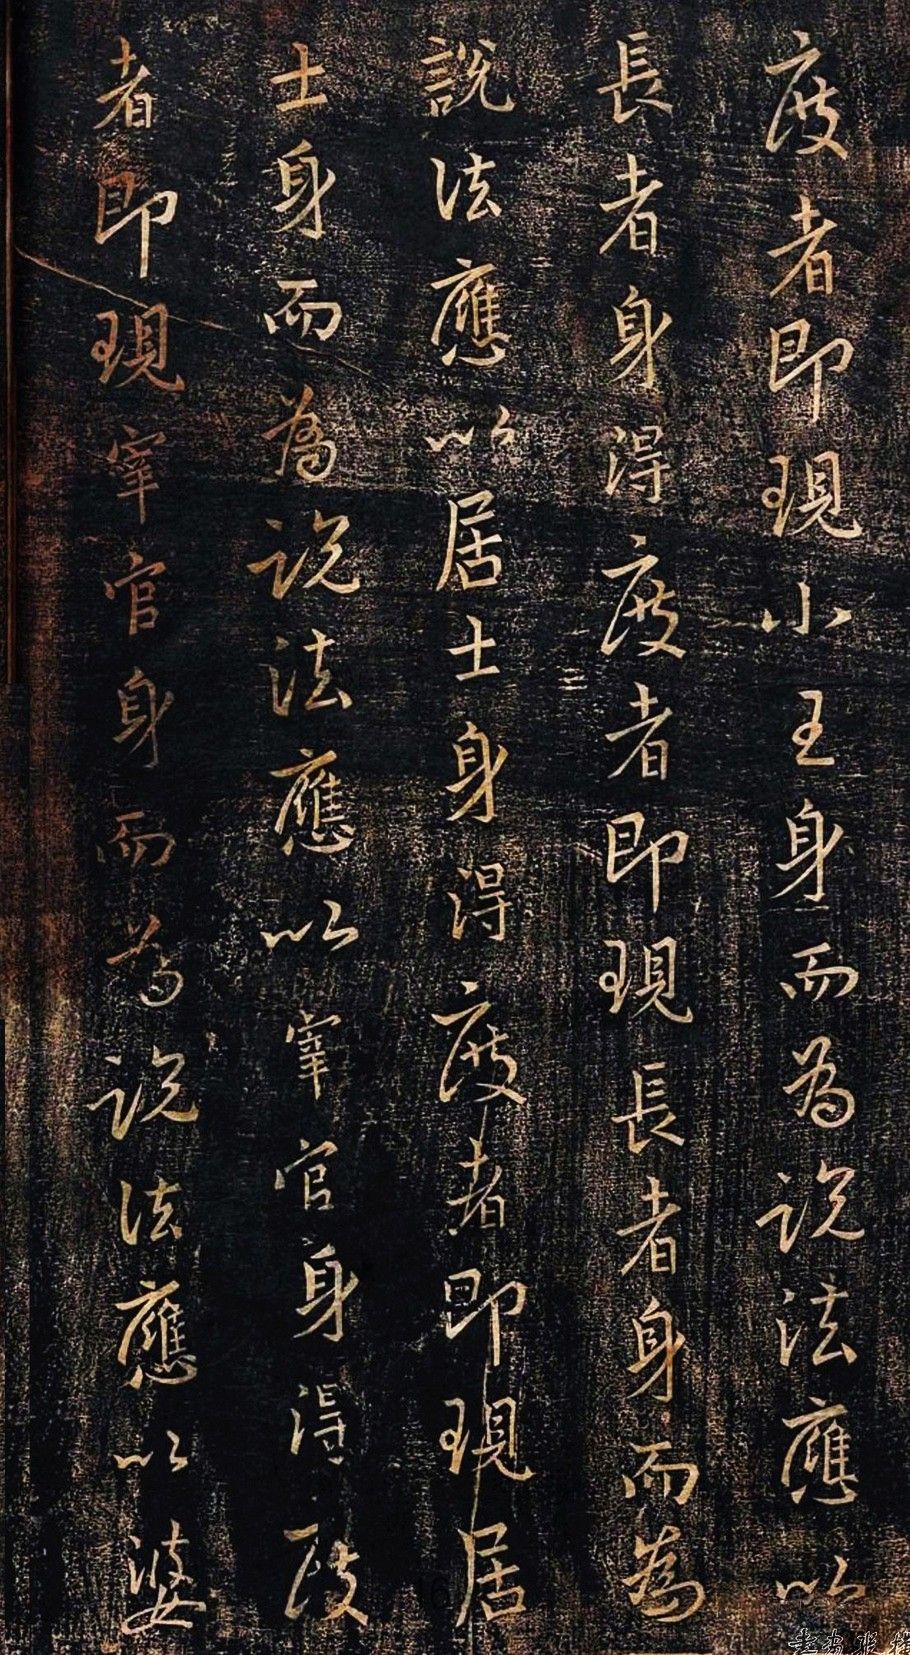 度者即現小王身而為說法應以
長者身得度者即現長者身而為
說法應以居士身得度者即現居
士身而為說法應以宰官身得度
者即現宰官身而為說法應以婆